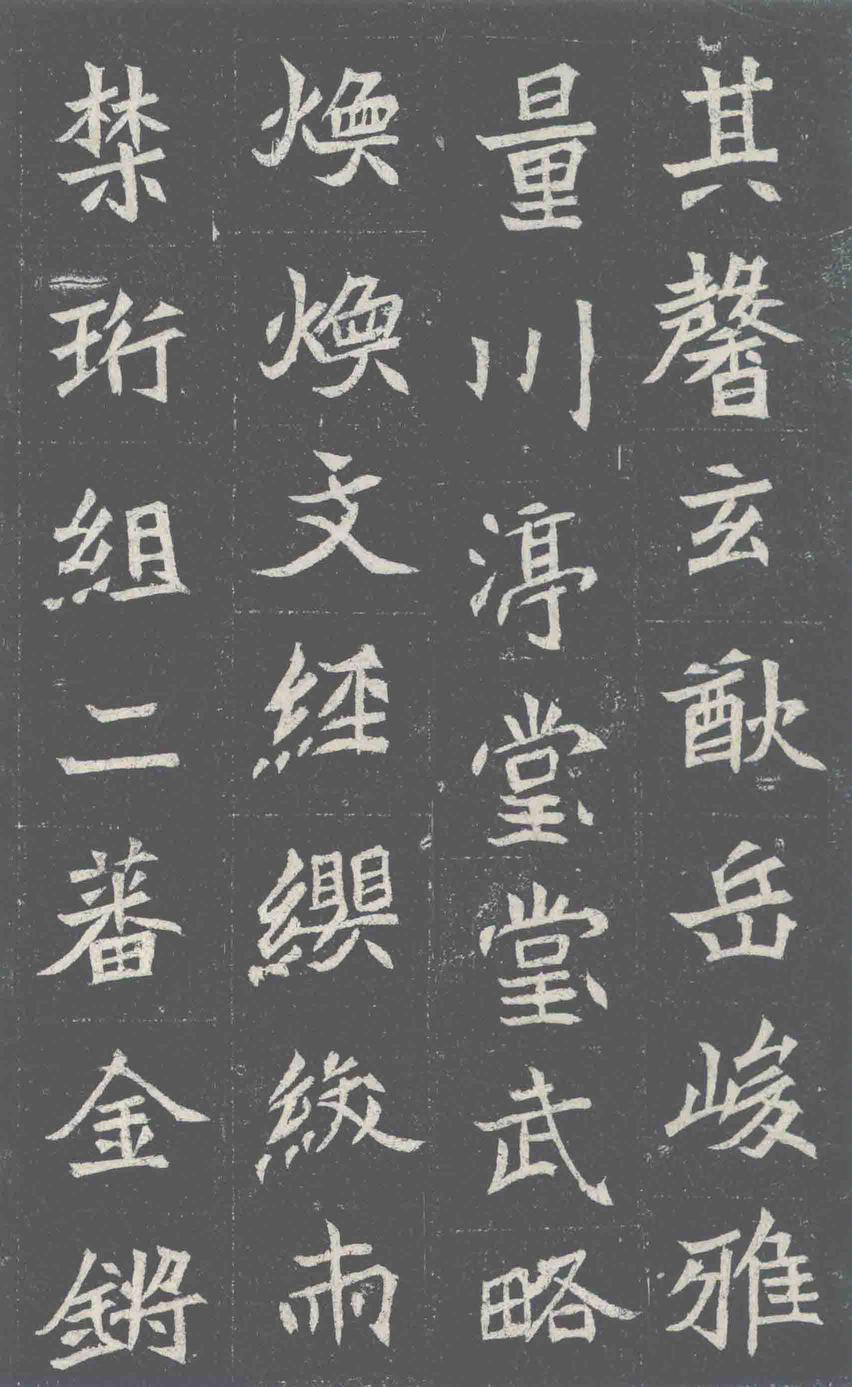 其馨玄猷岳峻雅
量川渟堂堂武略
煥煥文經纓紱兩
禁珩組二蕃金鏘